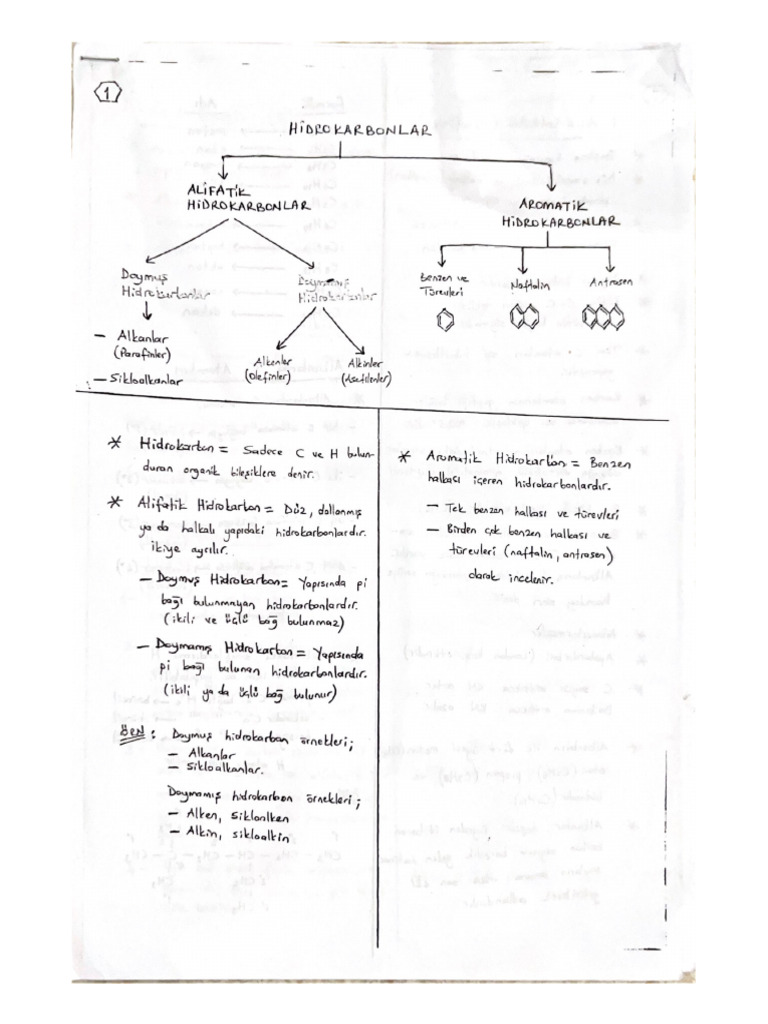 1
HİDROKARBONLAR
ALİFATİK
HİDROKARBONLAR
AROMATİK
HİDROKARBONLAR
Doymuş
Hidrokarbonlar
Doymamış
Hidrokarbonlar
Benzen ve
Türevleri
Naftalin
Antrasen
- Alkanlar
(Parafinler)
- Sikloalkanlar
Alkenler
(Olefinler)
Alkinler
(Asetilenler)
* Hidrokarbon = Sadece C ve H bulun-
duran organik bileşiklere denir.
* Alifatik Hidrokarbon = Düz, dallanmış
ya da halkalı yapıdaki hidrokarbonlardır.
ikiye ayrılır.
- Doymuş Hidrokarbon = Yapısında pi
bağı bulunmayan hidrokarbonlardır.
(ikili ve üçlü bağ bulunmaz)
- Doymamış Hidrokarbon = Yapısında
pi bağı bulunan hidrokarbonlardır.
(ikili ya da üçlü bağ bulunur)
ÖRN : Doymuş hidrokarbon örnekleri;
- Alkanlar
- sikloalkanlar.
Doymamış hidrokarbon örnekleri;
- Alken, sikloalken
- Alkin, sikloalkin
* Aromatik Hidrokarbon = Benzen
halkası içeren hidrokarbonlardır.
- Tek benzen halkası ve türevleri
- Birden çok benzen halkası ve
türevleri (naftalin, antrasen)
olarak incelenir.